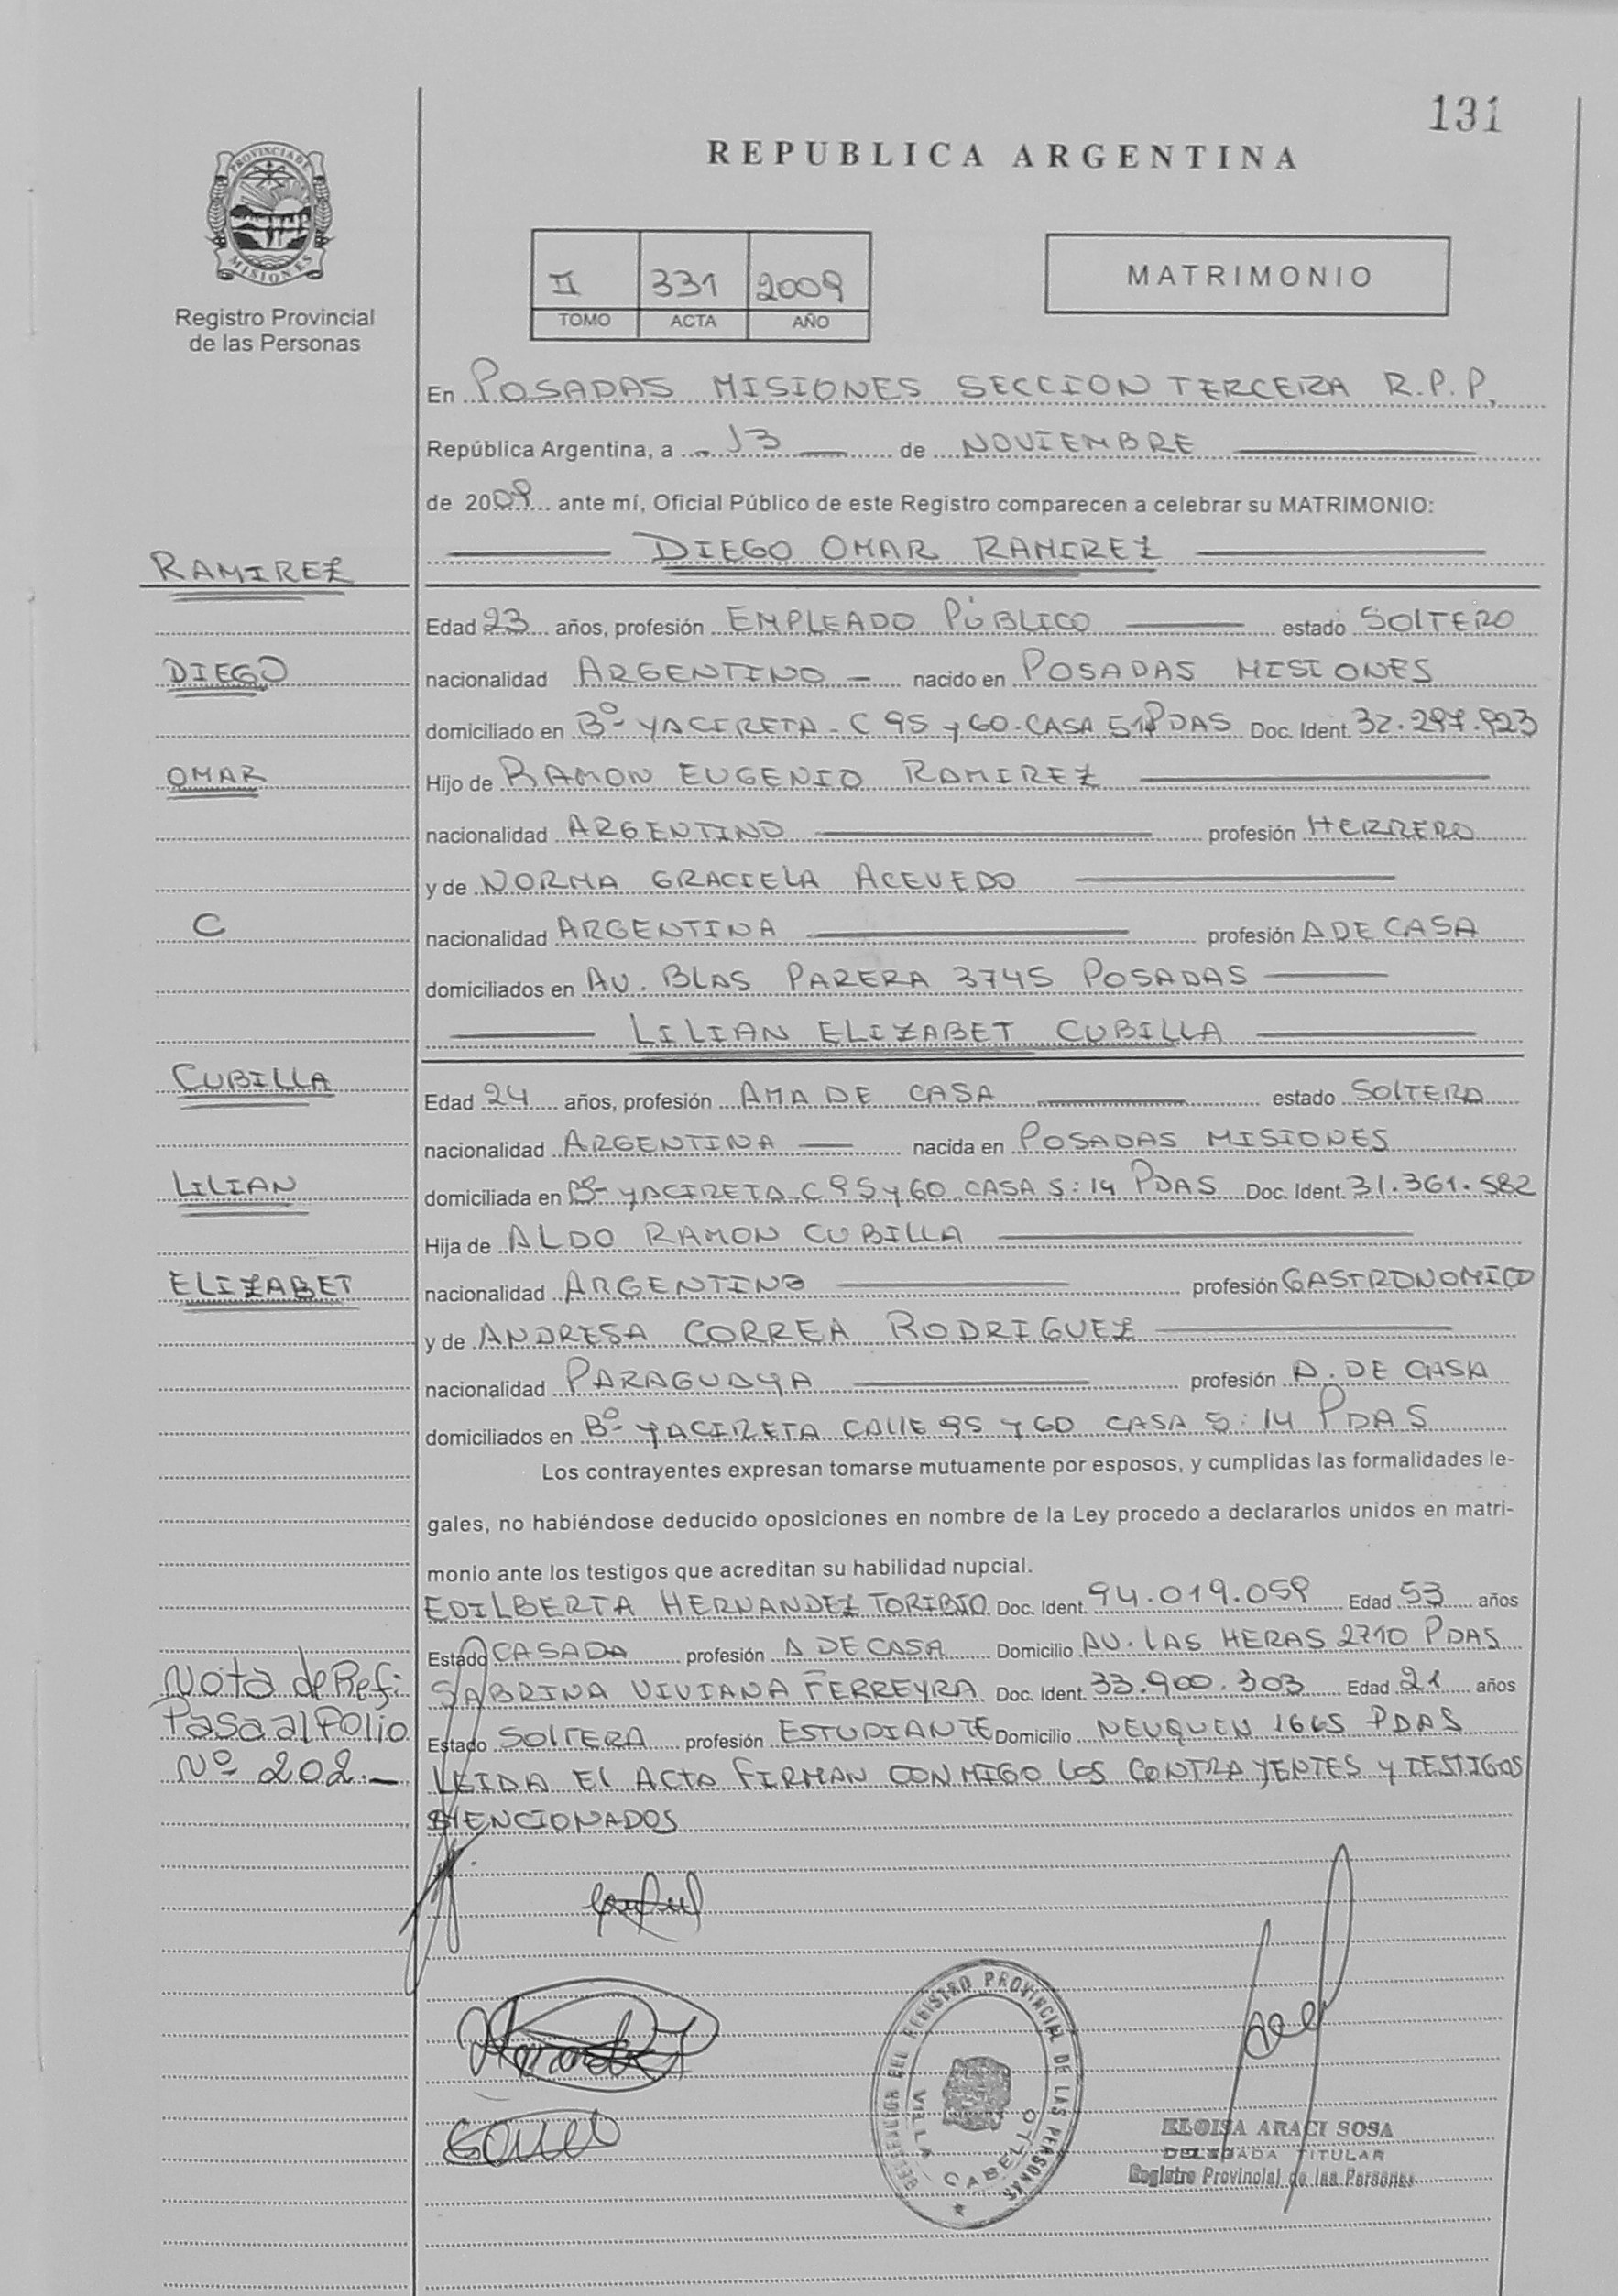 131
REPUBLICA ARGENTINA
PROVINCIA DE
MISIONES
Registro Provincial
de las Personas
II 331 2009
TOMO ACTA AÑO
MATRIMONIO
En POSADAS MISIONES SECCION TERCERA R.P.P.
República Argentina, a 13 de NOVIEMBRE
de 2009 ante mí, Oficial Público de este Registro comparecen a celebrar su MATRIMONIO:
DIEGO OMAR RAMIREZ
RAMIREZ
Edad 23 años, profesión EMPLEADO PÚBLICO estado SOLTERO
DIEGO
nacionalidad ARGENTINO - nacido en POSADAS MISIONES
domiciliado en Bº YACIRETA - C 95 y 60 - CASA PDAS Doc. Ident. 32.297.923
OMAR
Hijo de RAMON EUGENIO RAMIREZ
nacionalidad ARGENTINO profesión HERRERO
y de NORMA GRACIELA ACEVEDO
C
nacionalidad ARGENTINA profesión A DE CASA
domiciliados en AV. BLAS PARERA 3745 POSADAS
LILIAN ELIZABET CUBILLA
CUBILLA
Edad 24 años, profesión AMA DE CASA estado SOLTERA
nacionalidad ARGENTINA nacida en POSADAS MISIONES
LILIAN
domiciliada en Bº YACIRETA C 95 y 60 CASA 5:14 PDAS Doc. Ident. 31.361.582
Hija de ALDO RAMON CUBILLA
ELIZABET
nacionalidad ARGENTINO profesión GASTRONOMICO
y de ANDRESA CORREA RODRIGUEZ
nacionalidad PARAGUAYA profesión A. DE CASA
domiciliados en Bº YACIRETA CALLE 95 Y 60 CASA 5:14 PDAS
Los contrayentes expresan tomarse mutuamente por esposos, y cumplidas las formalidades le-
gales, no habiéndose deducido oposiciones en nombre de la Ley procedo a declararlos unidos en matri-
monio ante los testigos que acreditan su habilidad nupcial.
EDILBERTA HERNANDEZ TORIBIO Doc. Ident. 94.019.059 Edad 53 años
Estado CASADA profesión A DE CASA Domicilio AV. LAS HERAS 2710 PDAS
SABRINA VIVIANA FERREYRA Doc. Ident. 33.900.303 Edad 21 años
Estado SOLTERA profesión ESTUDIANTE Domicilio NEUQUEN 1665 PDAS
LEIDA El ACTA FIRMAN CONMIGO LOS CONTRAYENTES y TESTIGOS
MENCIONADOS
Nota de Ref:
Pasa al Folio
Nº 202.-
DELEGACION DEL REGISTRO PROVINCIAL DE LAS PERSONAS
VILLA CABELLO
ELOISA ARACI SOSA
DELEGADA TITULAR
Registro Provincial de las Personas